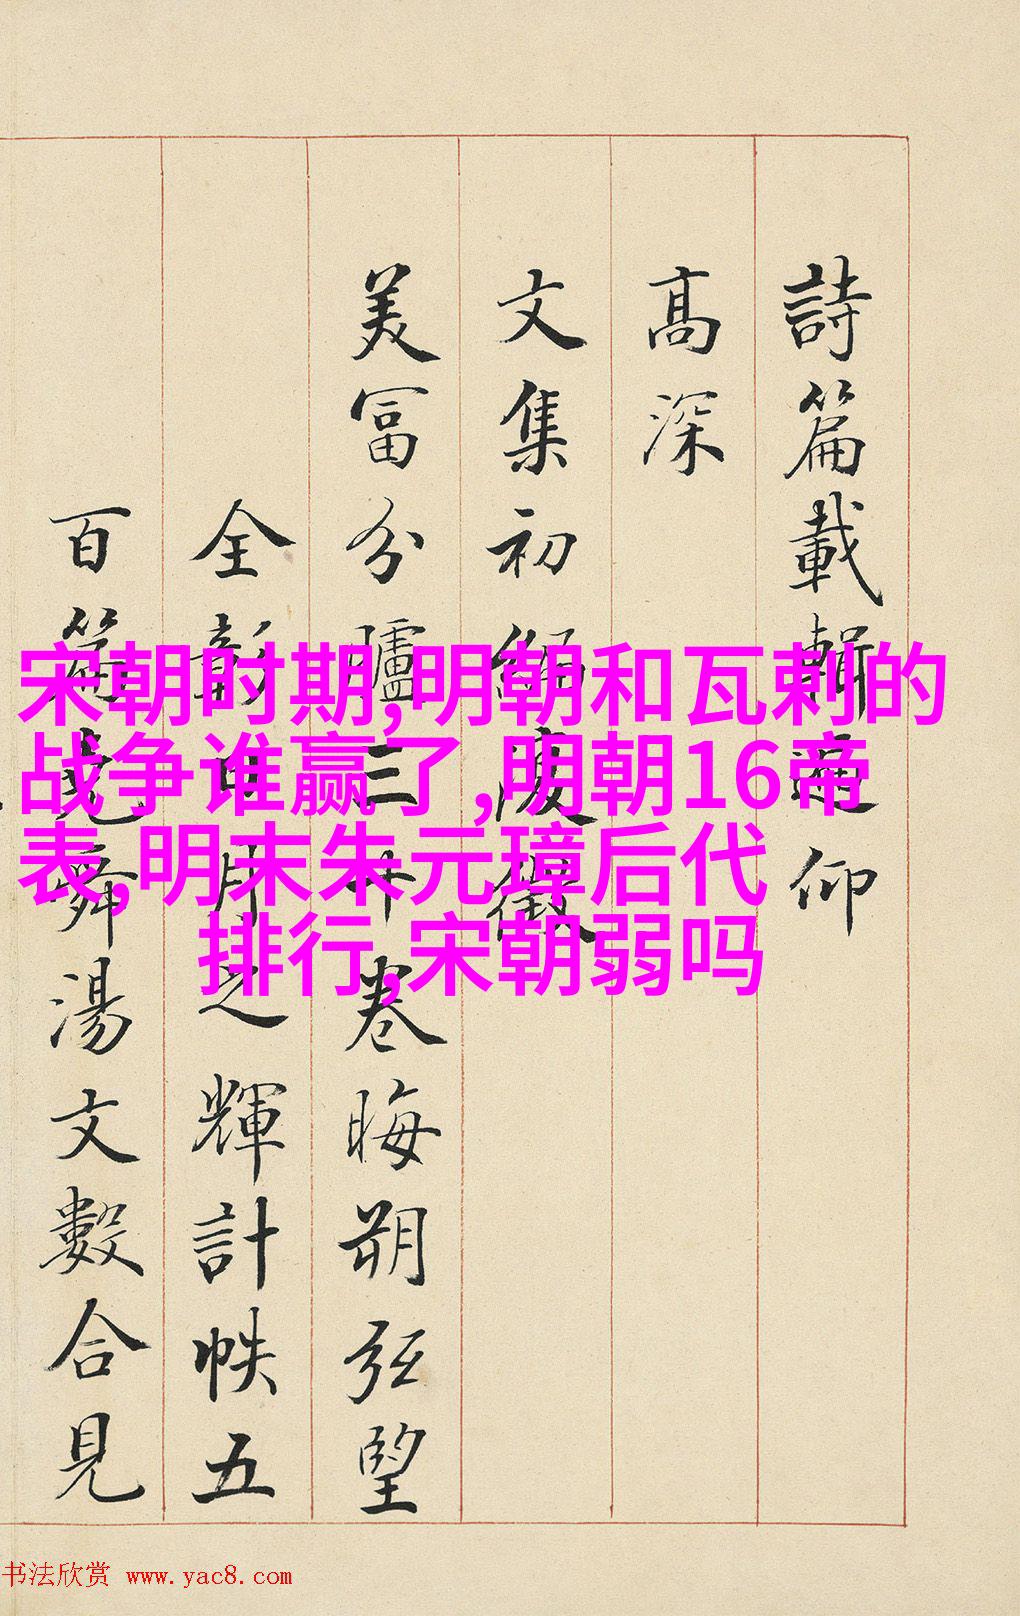 宋朝时期,明朝和瓦剌的
战争谁赢了,明朝16帝
表,明末朱元璋后代
排行,宋朝弱吗
詩篇載輯 仰
高深
文集初
美富分 三 卷晦朔弦望
全 月之輝計帙五
百篇 舜湯文數合見
书法欣赏 www.yac8.com